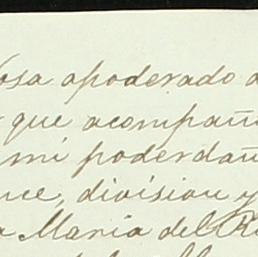 osa apoderado d
que acompañ
mi poderdan
nce, division y
Maria del R